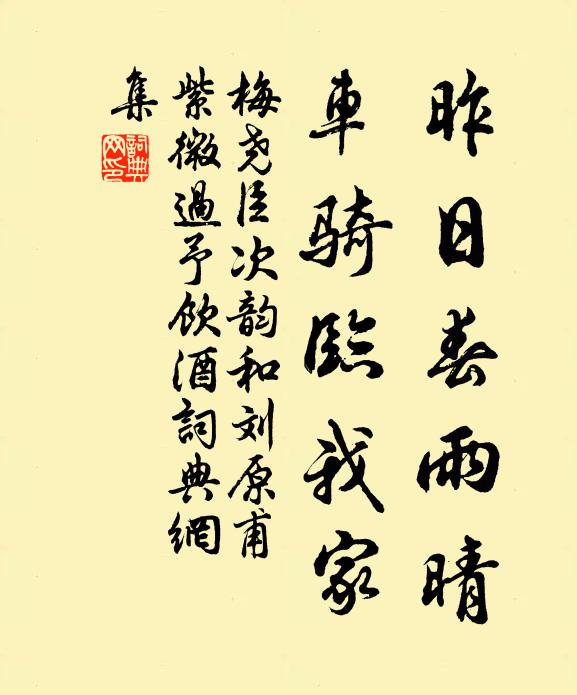 昨日春雨晴
車騎臨我家
梅尧臣次韵和刘原甫
紫微過予飲酒詞典網
集
詞典
网印